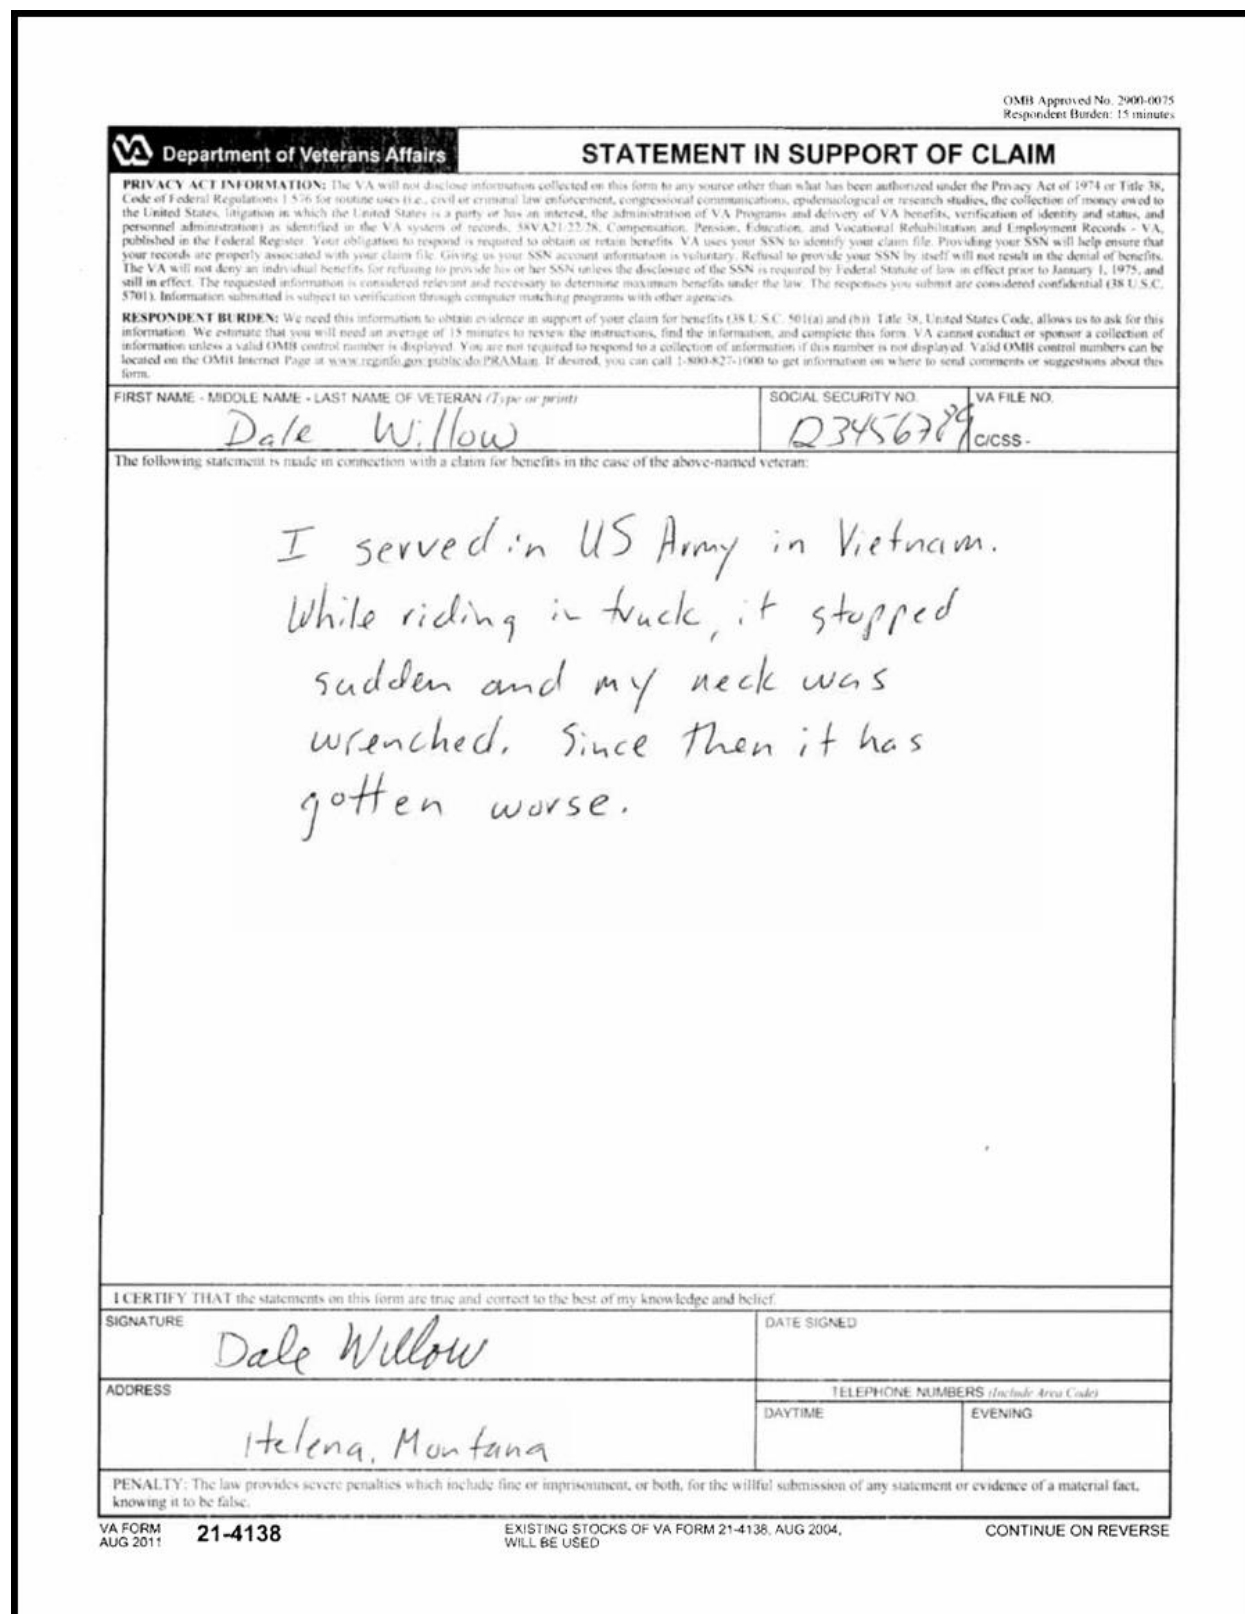 OMB Approved No. 2900-0075
Respondent Burden: 15 minutes
VA Department of Veterans Affairs
STATEMENT IN SUPPORT OF CLAIM
PRIVACY ACT INFORMATION: The VA will not disclose information collected on this form to any source other than what has been authorized under the Privacy Act of 1974 or Title 38,
Code of Federal Regulations 1.576 for routine uses (i.e., civil or criminal law enforcement, congressional communications, epidemiological or research studies, the collection of money owed to
the United States, litigation in which the United States is a party or has an interest, the administration of VA Programs and delivery of VA benefits, verification of identity and status, and
personnel administration) as identified in the VA system of records, 58VA21/22/28, Compensation, Pension, Education, and Vocational Rehabilitation and Employment Records - VA,
published in the Federal Register. Your obligation to respond is required to obtain or retain benefits. VA uses your SSN to identify your claim file. Providing your SSN will help ensure that
your records are properly associated with your claim file. Giving us your SSN account information is voluntary. Refusal to provide your SSN by itself will not result in the denial of benefits.
The VA will not deny an individual benefits for refusing to provide his or her SSN unless the disclosure of the SSN is required by Federal Statute of law in effect prior to January 1, 1975, and
still in effect. The requested information is considered relevant and necessary to determine maximum benefits under the law. The responses you submit are considered confidential (38 U.S.C.
5701). Information submitted is subject to verification through computer matching programs with other agencies.
RESPONDENT BURDEN: We need this information to obtain evidence in support of your claim for benefits (38 U.S.C. 501(a) and (b)). Title 38, United States Code, allows us to ask for this
information. We estimate that you will need an average of 15 minutes to review the instructions, find the information, and complete this form. VA cannot conduct or sponsor a collection of
information unless a valid OMB control number is displayed. You are not required to respond to a collection of information if this number is not displayed. Valid OMB control numbers can be
located on the OMB Internet Page at www.reginfo.gov/public/do/PRAMain. If desired, you can call 1-800-827-1000 to get information on where to send comments or suggestions about this
form.
FIRST NAME - MIDDLE NAME - LAST NAME OF VETERAN (Type or print)
Dale Willow
SOCIAL SECURITY NO.
123456789
VA FILE NO.
C/CSS -
The following statement is made in connection with a claim for benefits in the case of the above-named veteran:
I served in US Army in Vietnam.
While riding in truck, it stopped
sudden and my neck was
wrenched. Since then it has
gotten worse.
I CERTIFY THAT the statements on this form are true and correct to the best of my knowledge and belief.
SIGNATURE
Dale Willow
DATE SIGNED
ADDRESS
Helena, Montana
TELEPHONE NUMBERS (Include Area Code)
DAYTIME
EVENING
PENALTY: The law provides severe penalties which include fine or imprisonment, or both, for the willful submission of any statement or evidence of a material fact,
knowing it to be false.
VA FORM
AUG 2011
21-4138
EXISTING STOCKS OF VA FORM 21-4138, AUG 2004,
WILL BE USED
CONTINUE ON REVERSE